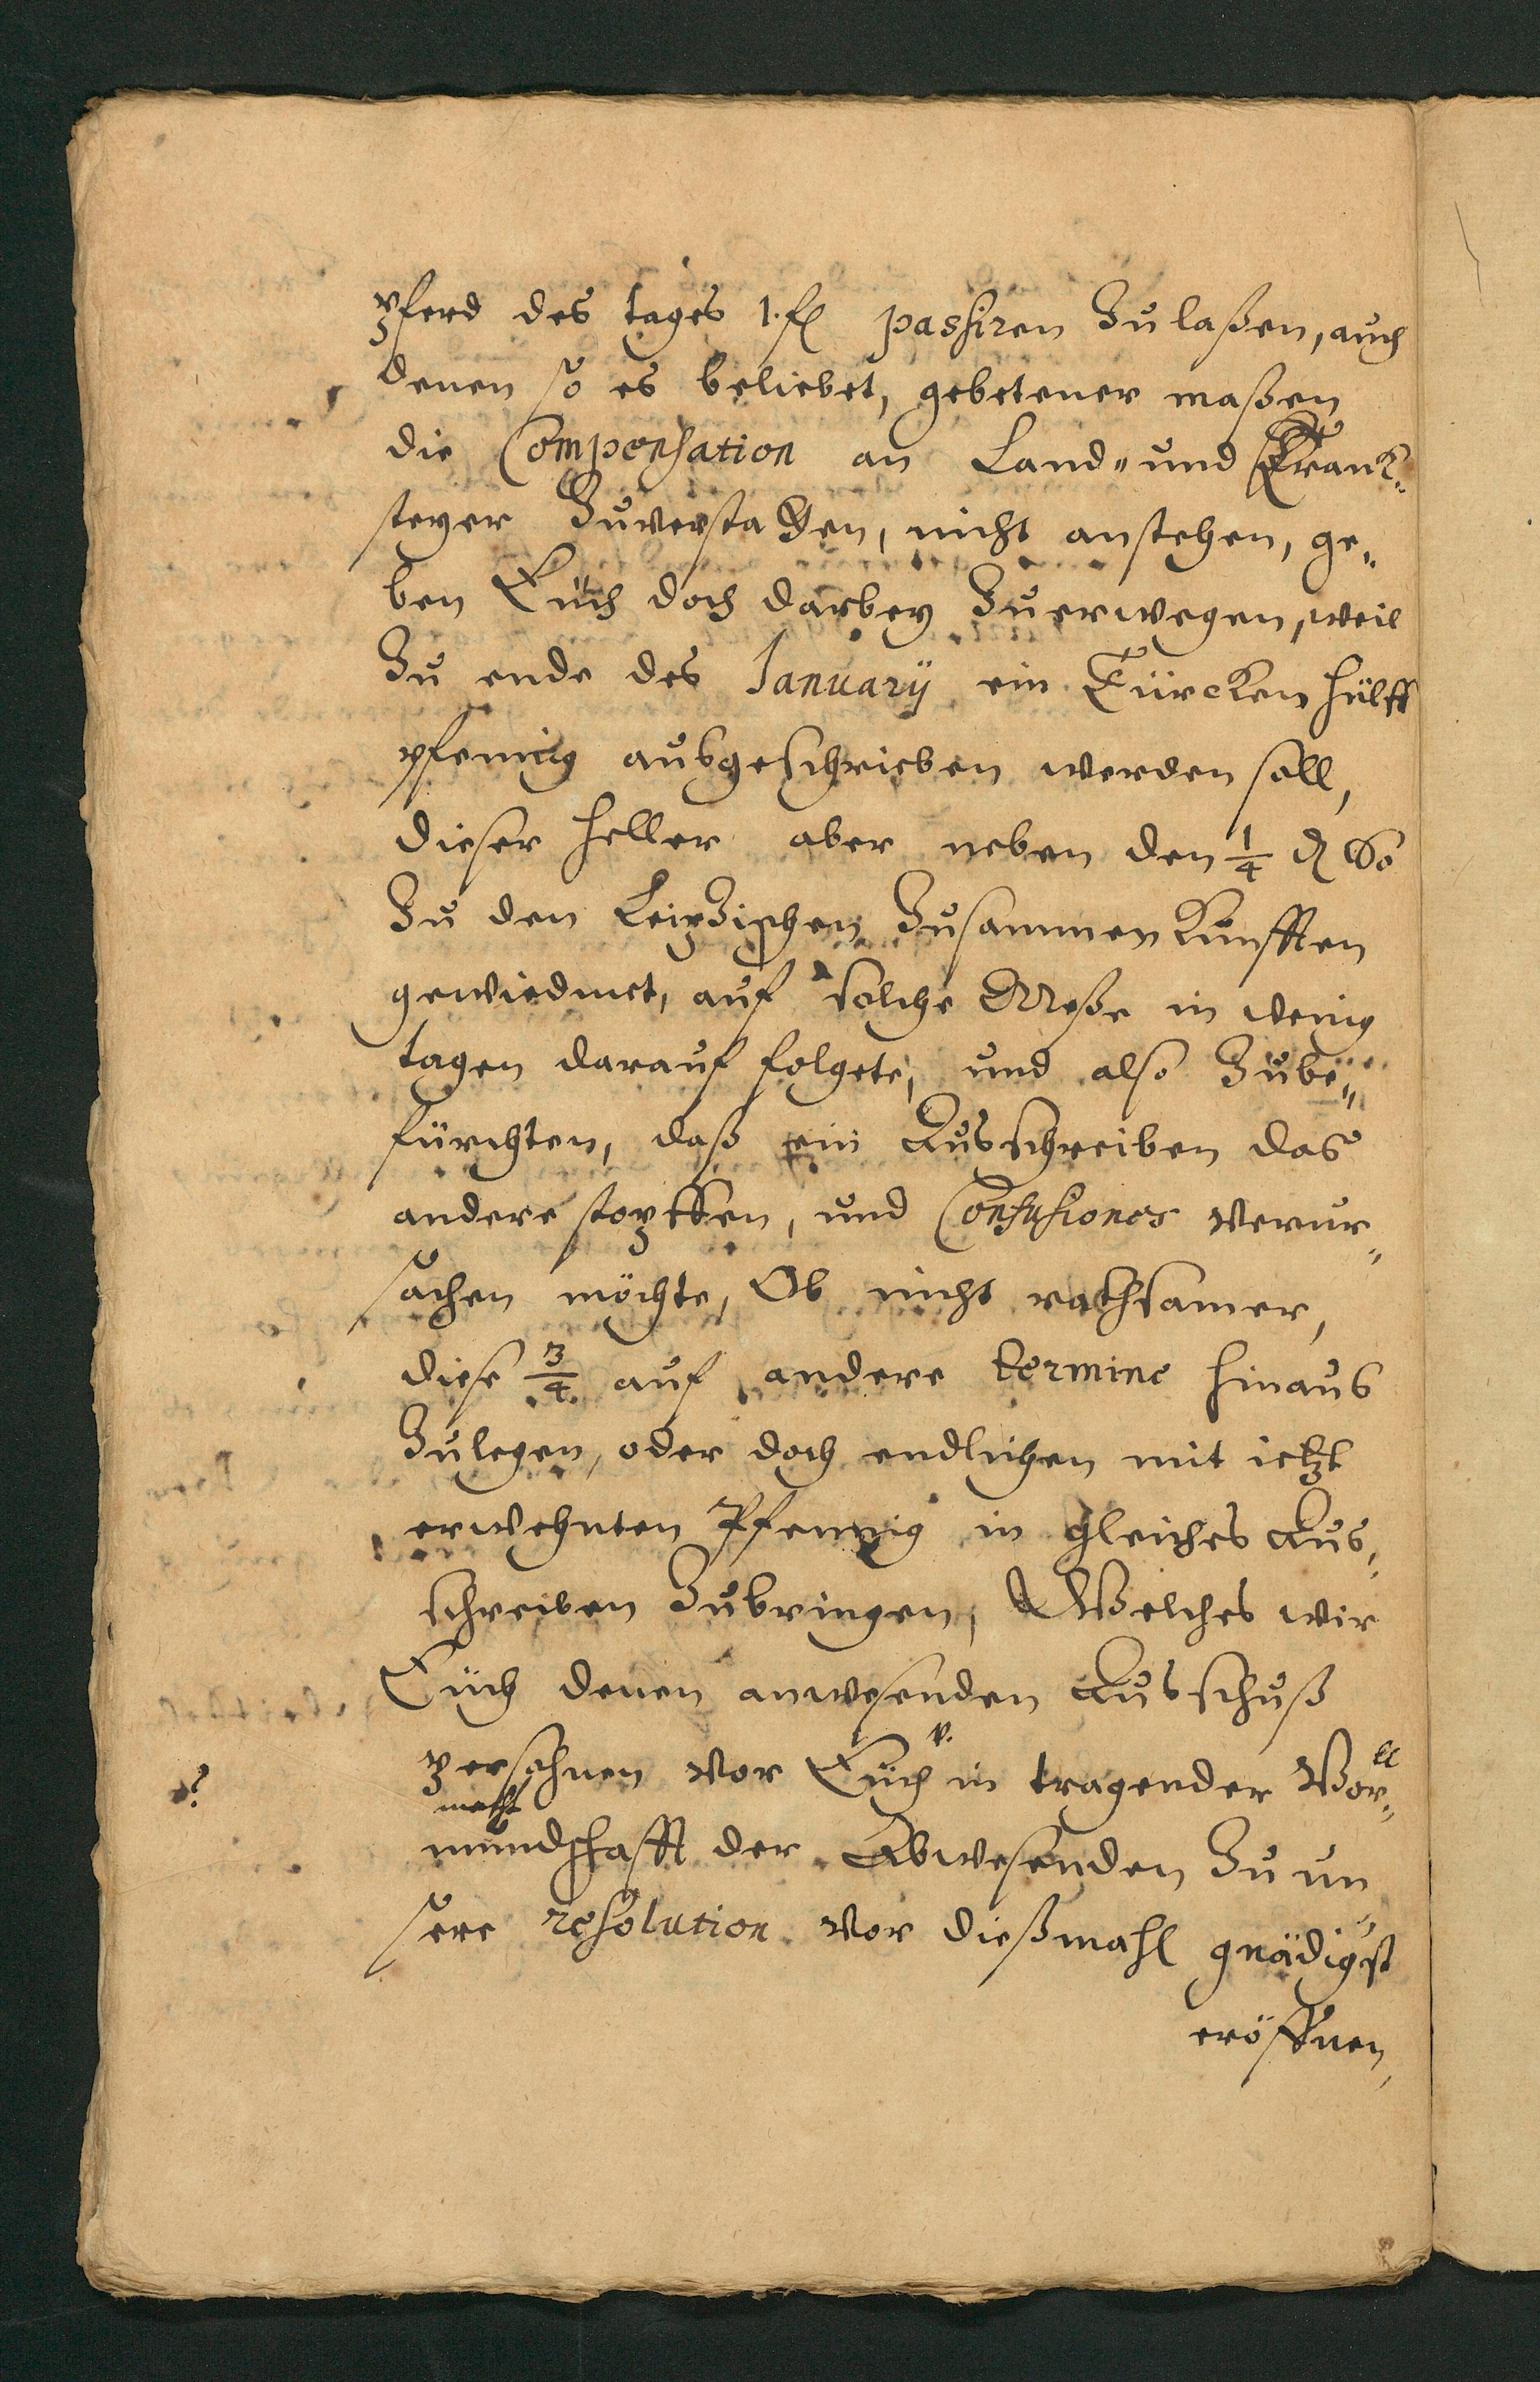 pferd des tages 1. fl passiren Zulaßen, auch
denen so es beliebet, gebetener maßen
die Compensation an Land- und Tranck-
steyer Zuverstatten, nicht anstehen, ge-
ben Euch doch darbey Zuerwegen, weil
Zu ende des Januarÿ ein Türcken hülff
pfennig ausgeschrieben werden soll,
dieser heller aber neben den 1/4 ₰ so
Zu den Leipzischen Zusammen Künfften
gewiedmet, auf solche Meße in wenig
tagen darauf folgete, und also Zube-
fürchten, daß ein Ausschreiben das
andere stopffen, und Confusiones verur-
sachen möchte, Ob nicht rathsamer,
diese 3/4 auf andere termine hinaus
Zulegen, oder doch endlichen mit ietzt
erwehnten Pfennig in gleiches Aus-
schreiben Zubringen, Welches wir
Euch denen anwesenden Ausschuß
v.
persohnen vor Euch in tragender Vor-
ll
macht
mundschafft der Abwesenden Zu un-
?
sere resolution vor dießmahl gnädigst
eröffnen,